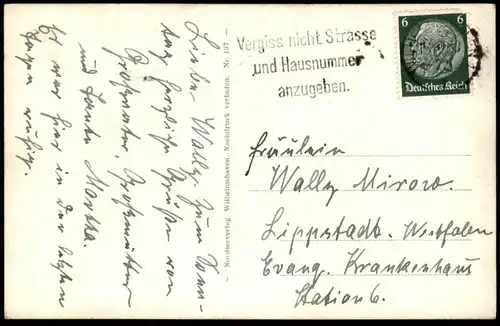 Liebe Wally. Zum Wun-
tag herzliche Grüße von
Großvater, Großmutter
und Tante Martha.
Es war hier in der letzten
Tagen ruhig.
Nordseeverlag, Wilhelmshaven. Nachdruck verboten. Nr. 197
Vergiss nicht Strasse
und Hausnummer
anzugeben.
6 6
Deutsches Reich
Fräulein
Wally Mirow.
Lippstadt. Westfalen
Evang. Krankenhaus
Station 6.